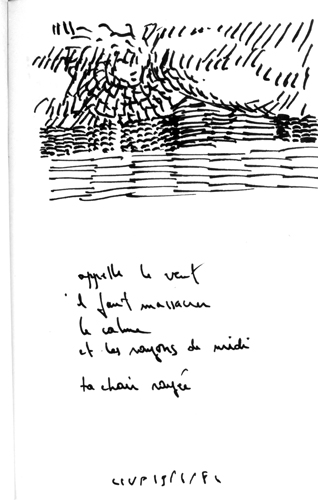 appelle le vent
il faut massacrer
le calme
et les rayons de midi
ta chair rayée